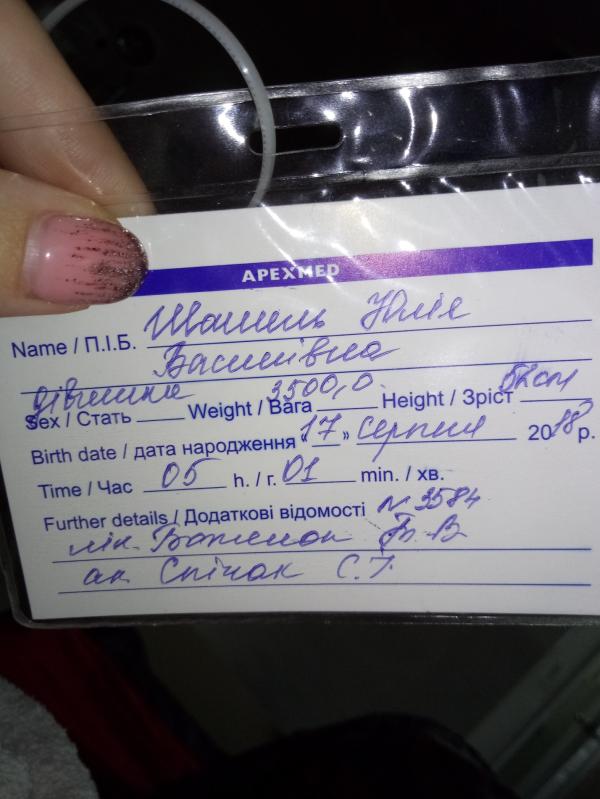 APEXMED
Name / П.І.Б. Шашель Юлія
Василівна
дівчинка 3500,0 52см
Sex / Стать Weight / Вага Height / Зріст
Birth date / дата народження "17" серпня 2018 р.
Time / Час 05 h. / г. 01 min. / хв.
Further details / Додаткові відомості № 3584
лік. Т.В
ак. Спічак С.Г.